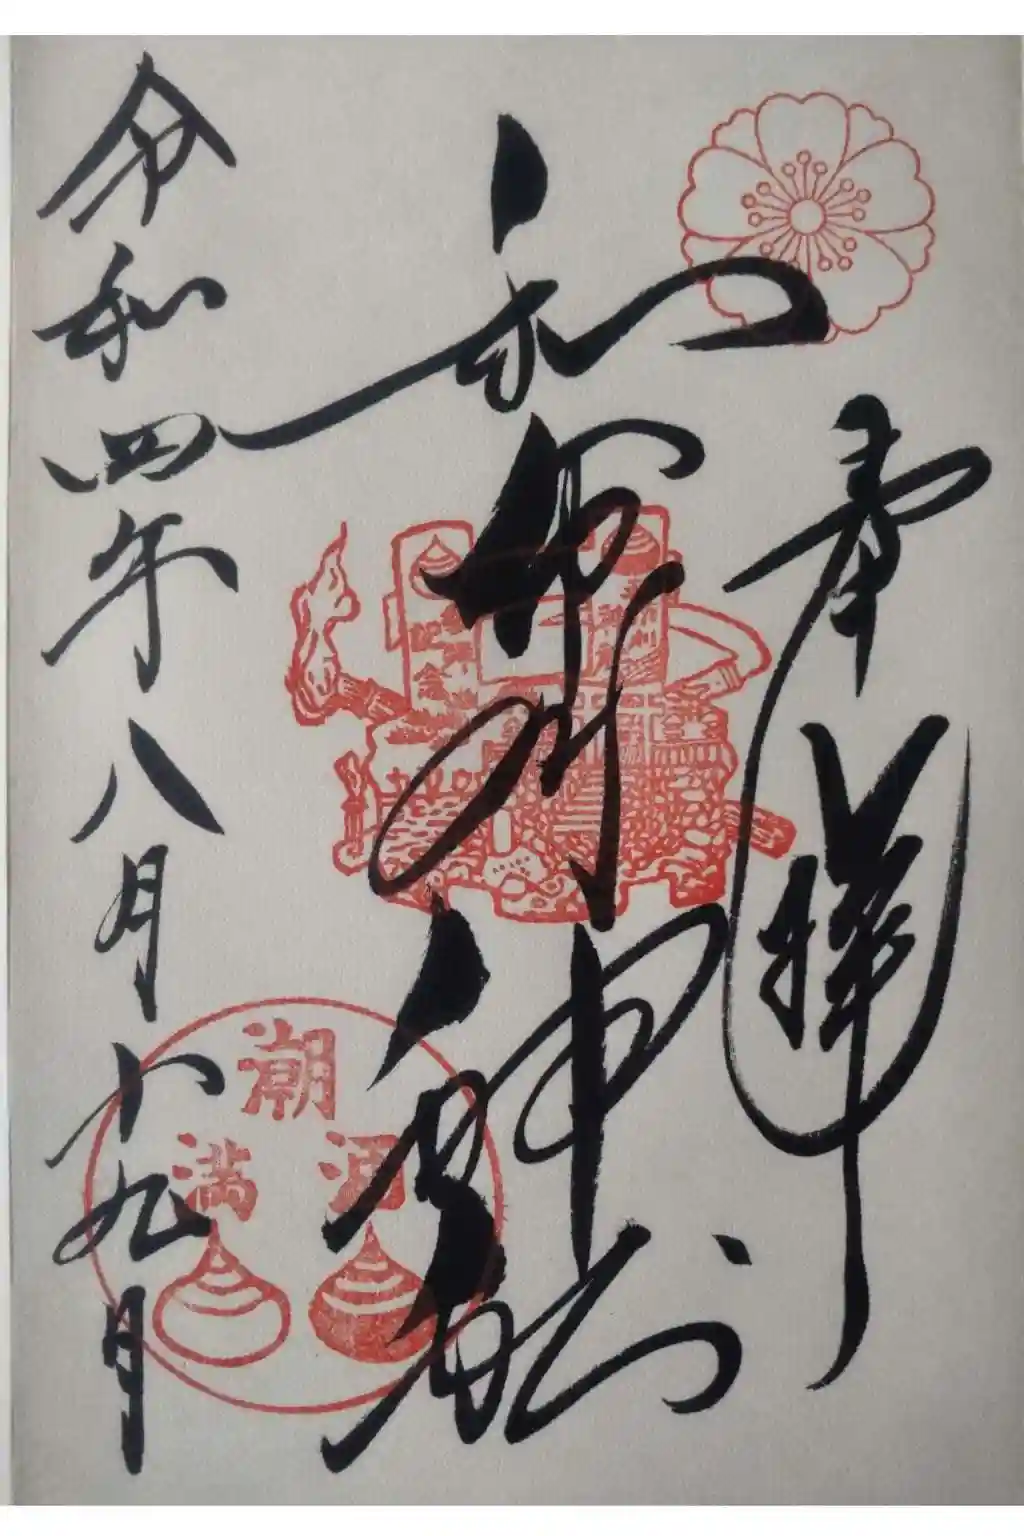 奉拝
和布刈神社
令和四年八月十九日
記念
潮
満